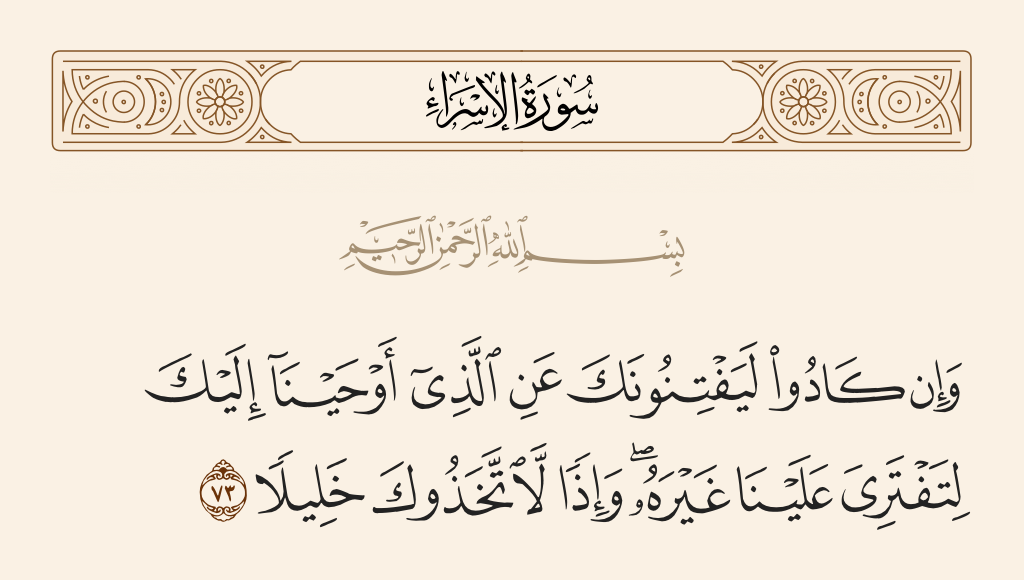 سُورَةُ الإِسْرَاءِ
بِسْمِ ٱللَّهِ ٱلرَّحْمَٰنِ ٱلرَّحِيمِ
وَإِن كَادُوا۟ لَيَفْتِنُونَكَ عَنِ ٱلَّذِىٓ أَوْحَيْنَآ إِلَيْكَ
لِتَفْتَرِىَ عَلَيْنَا غَيْرَهُۥ ۖ وَإِذًا لَّٱتَّخَذُوكَ خَلِيلًا ٧٣